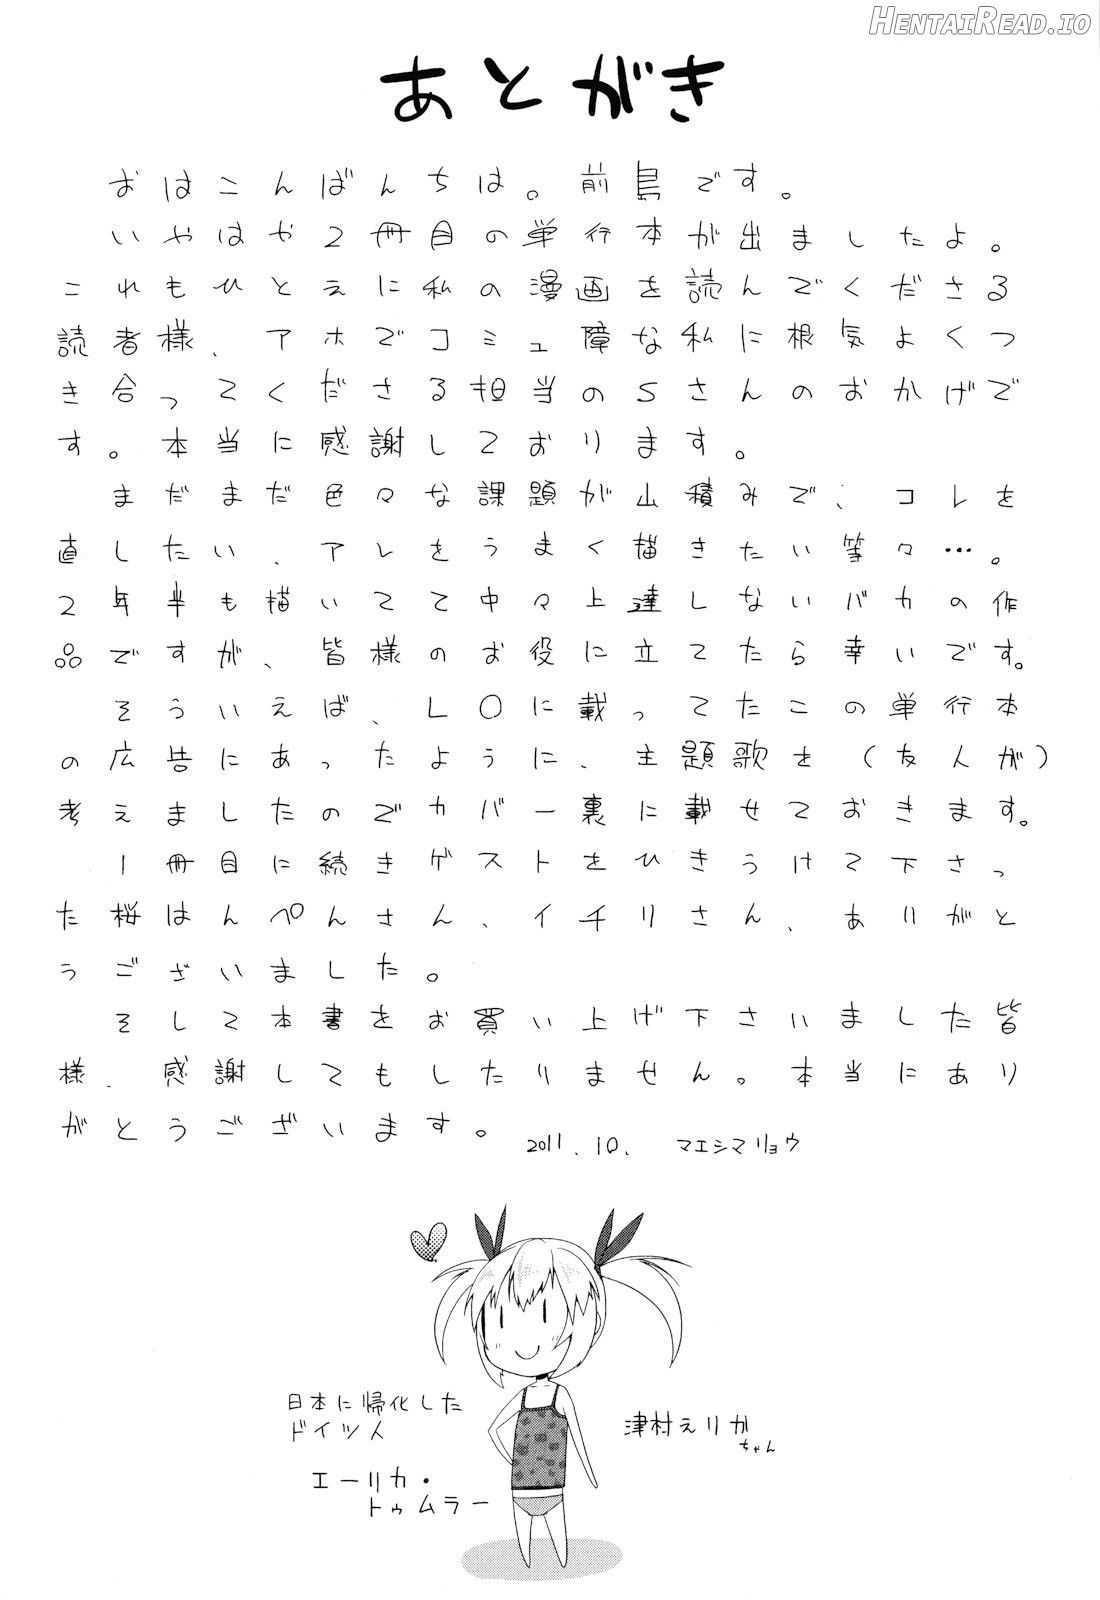 HENTAIREAD.IO
あとがき
おはこんばんちは。前島です。
いやはや2冊目の単行本が出ましたよ。
これもひとえに私の漫画を読んでくださる
読者様、アホでコミュ障な私に根気よくつ
き合ってくださる担当のSさんのおかげで
す。本当に感謝しております。
まだまだ色々な課題が山積みで、コレを
直したい、アレをうまく描きたい等々…。
2年半も描いてて中々上達しないバカの作
品ですが、皆様のお役に立てたら幸いです。
そういえば、LOに載ってたこの単行本
の広告にあったように、主題歌を(友人が)
考えましたのでカバー裏に載せておきます。
1冊目に続きゲストをひきうけて下さっ
た桜はんぺんさん、イチリさん、ありがと
うございました。
そして本書をお買い上げ下さいました皆
様、感謝してもしたりません。本当にあり
がとうございます。
2011.10. マエシマリョウ
日本に帰化した
ドイツ人
エーリカ・
トゥムラー
津村えりか
ちゃん